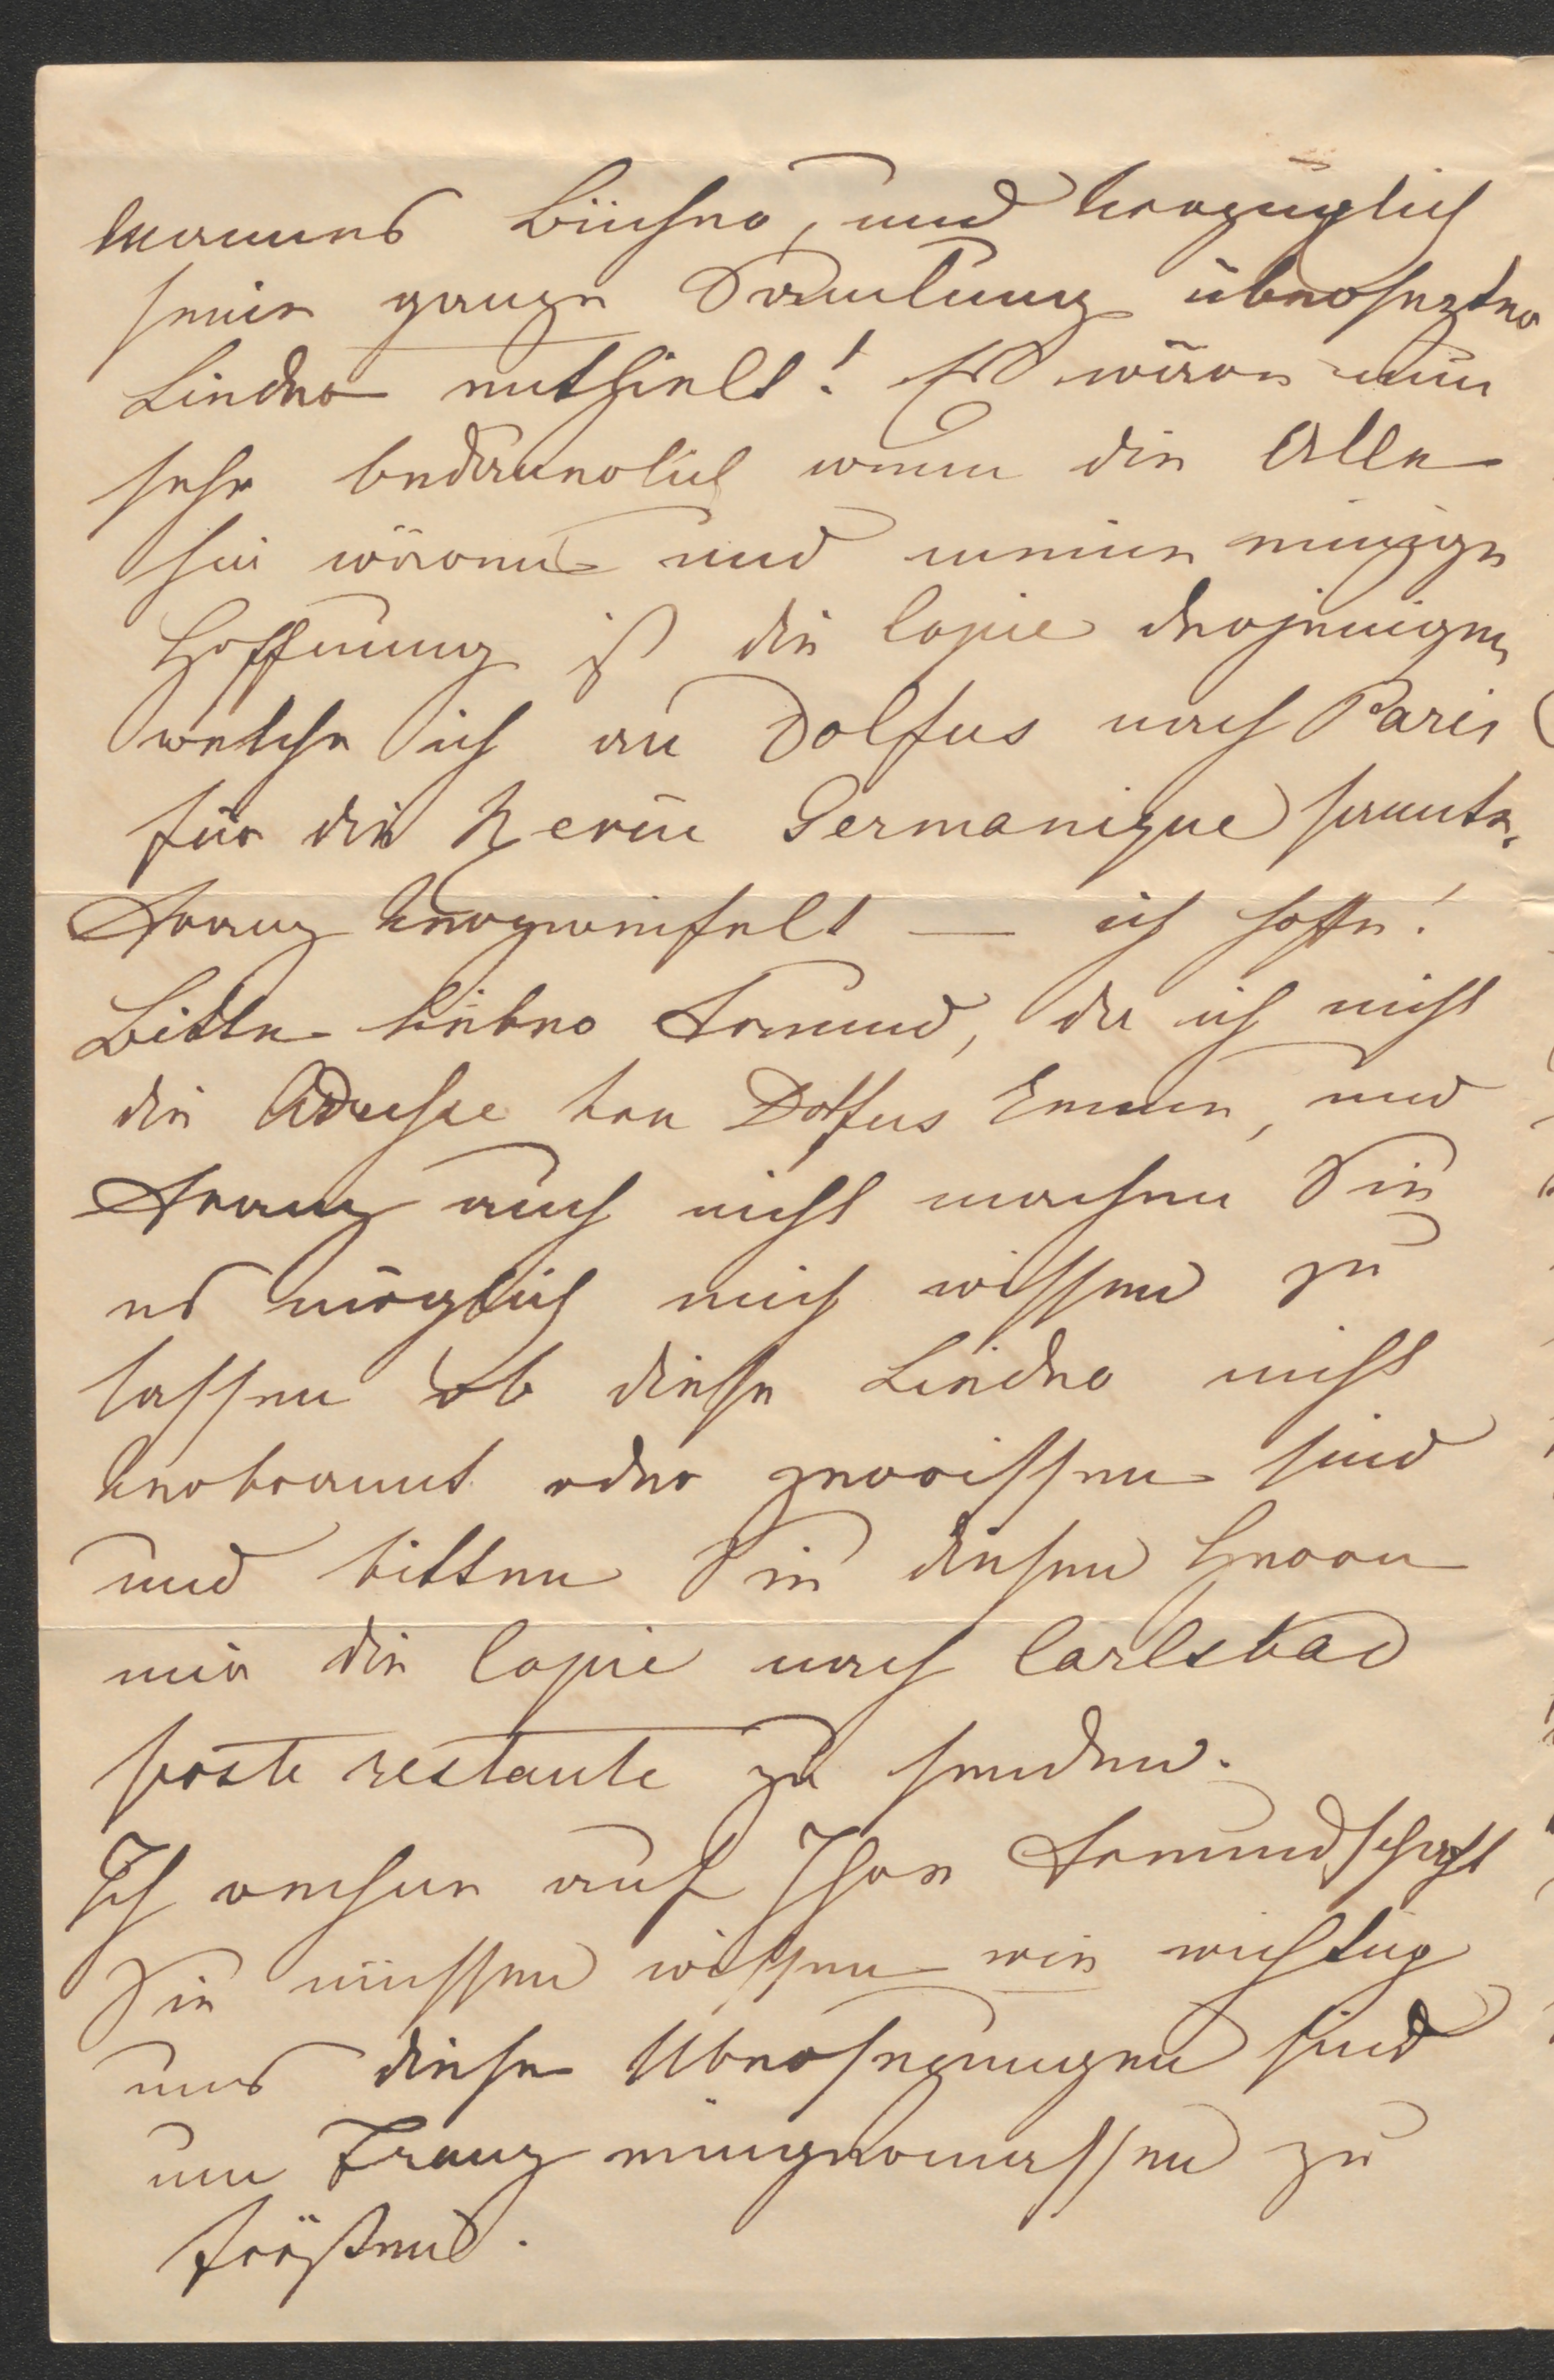 manns Bücher, und vorzüglich
seine ganze Samlung übersezter
Lieder enthielt! Es wäre nun
sehr bedauerlich wenn die Alle
hin wären und meine einzige
Hoffnung ist die Copie derjenigen
welche ich an Dolfus nach Paris
für die Revue Germanique sandte.
Franz verzweifelt — ich hoffe!
Bitte lieber Freund, da ich nicht
die Adresse von Dolfus kenne, und
Franz auch nicht machen Sie
es möglich mich wissen zu
lassen ob diese Lieder nicht
verbrannt oder zerrissen sind
und bitten Sie diesen Herrn
mir die Copie nach Carlsbad
poste restante zu senden.
Ich rechne auf Ihre Freundschaft
Sie müssen wissen wie wichtig
uns diese Übersezungen sind
um Franz einigermassen zu
trösten.